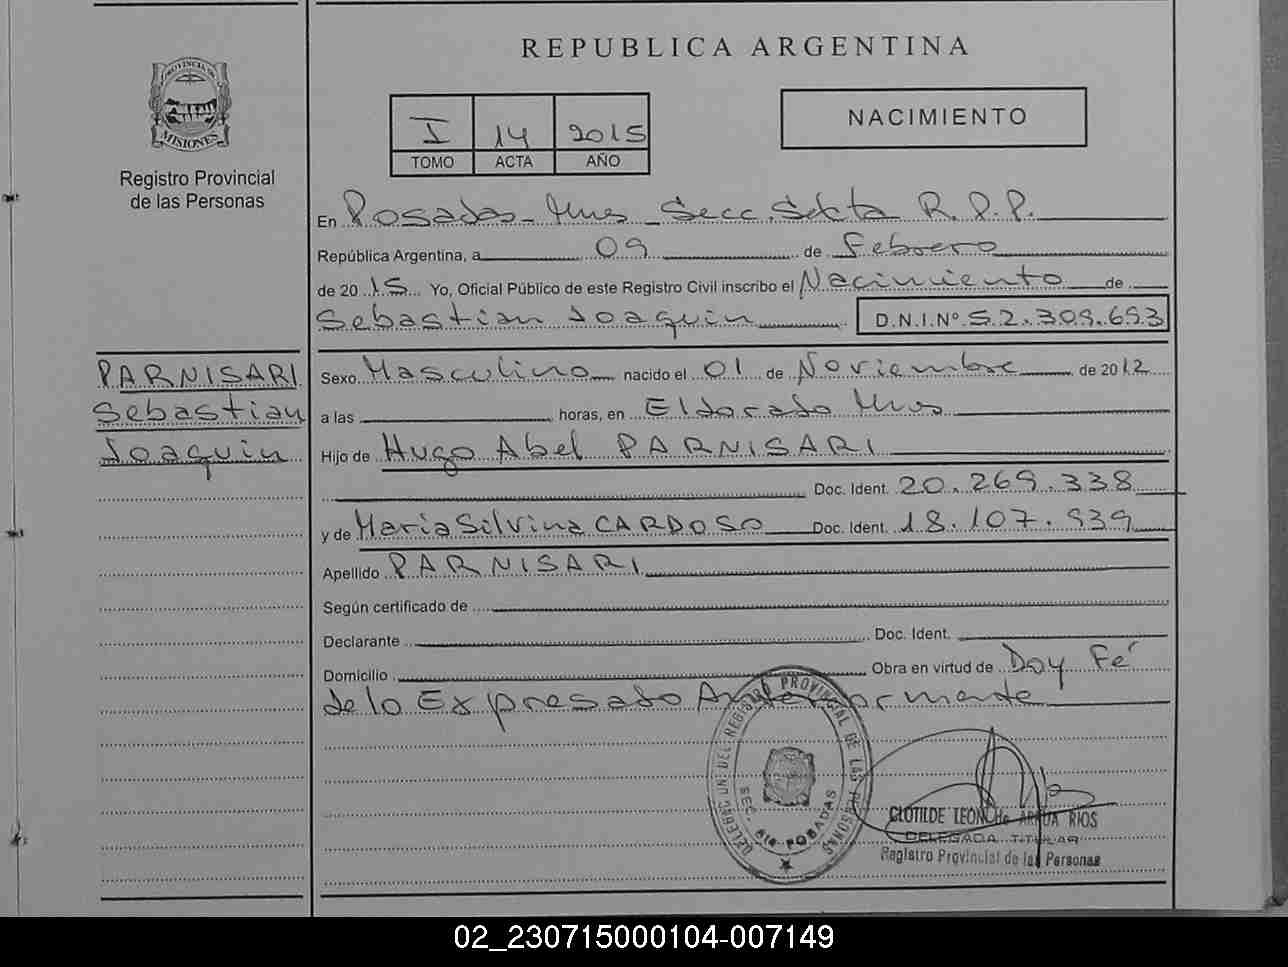 REPUBLICA ARGENTINA
PROVINCIA DE
MISIONES
Registro Provincial
de las Personas
I 14 2015
TOMO ACTA AÑO
NACIMIENTO
En Posadas - Mnes - Secc. Sexta R.P.P.
República Argentina, a 09 de Febrero
de 2015 Yo, Oficial Público de este Registro Civil inscribo el Nacimiento de
Sebastian Joaquin D.N.I.Nº 52.309.693
PARNISARI
Sebastian
Joaquin
Sexo Masculino nacido el 01 de Noviembre de 2012
a las horas, en Eldorado Mnes
Hijo de Hugo Abel PARNISARI
Doc. Ident. 20.269.338
y de Maria Silvina CARDOSO Doc. Ident. 18.107.939
Apellido PARNISARI
Según certificado de
Declarante Doc. Ident.
Domicilio Obra en virtud de Doy Fé
de lo Expresado Anteriormente
DELEGACION DEL REGISTRO PROVINCIAL DE LAS PERSONAS
SEC. 6ta POSADAS
CLOTILDE LEONC de ARRUA RIOS
DELEGADA TITULAR
Registro Provincial de las Personas
02_230715000104-007149